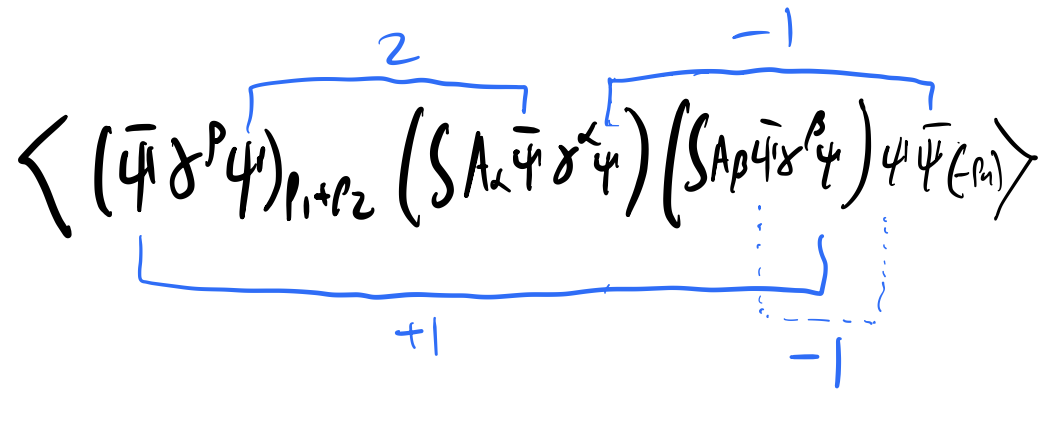 2 -1
⟨ (ψ̄ γ^ρ ψ)_{p₁+p₂} (∫ A_α ψ̄ γ^α ψ) (∫ A_β ψ̄ γ^β ψ) ψ ψ̄ (-p₄) ⟩
+1 -1